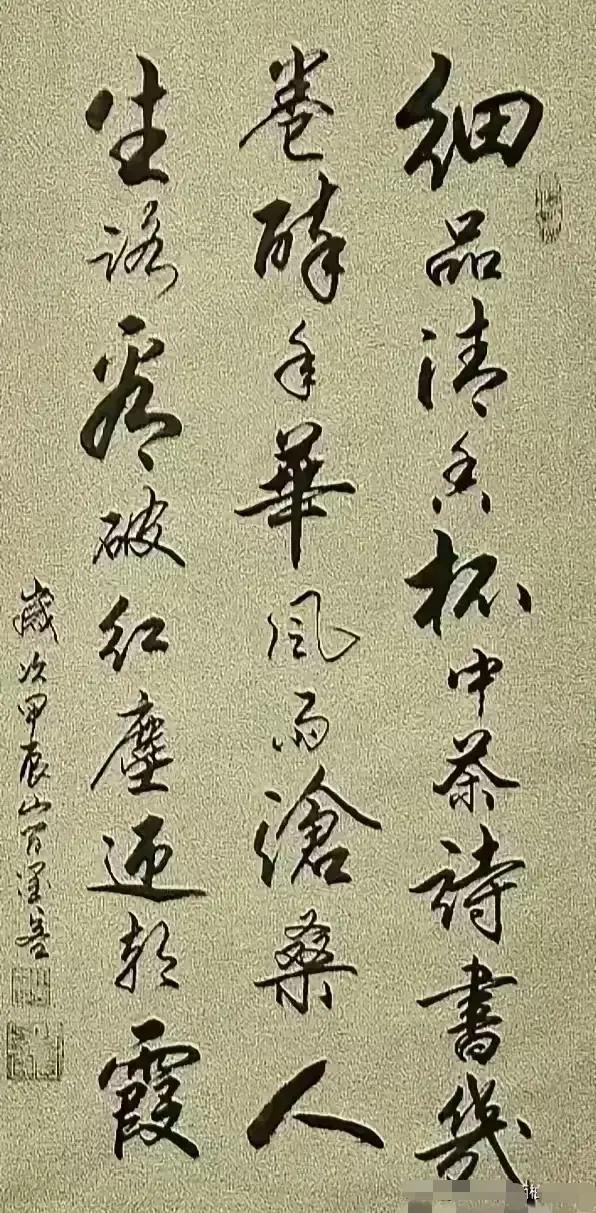 細品清香杯中茶詩書幾
卷醉年華風雨滄桑人
生路看破紅塵迎朝霞
歲次甲辰山